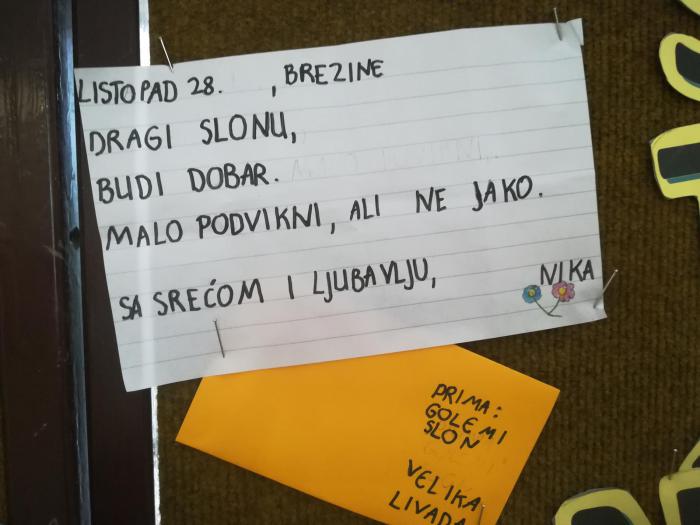 LISTOPAD 28. , BREZINE
DRAGI SLONU,
BUDI DOBAR.
MALO PODVIKNI, ALI NE JAKO.
SA SREĆOM I LJUBAVLJU,
NIKA
PRIMA:
GOLEMI
SLON
VELIKA
LIVADA